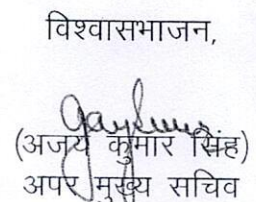 विश्वासभाजन,
(अजय कुमार सिंह)
अपर मुख्य सचिव